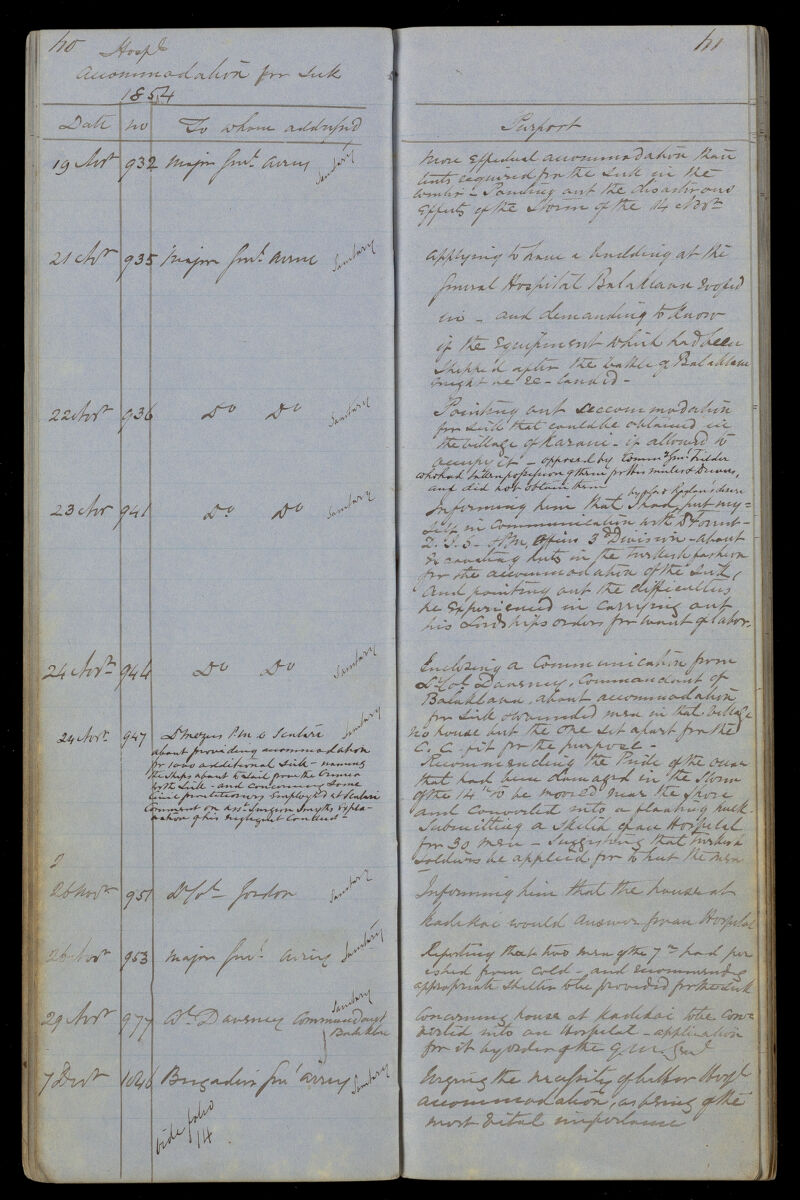 40
Hospl
accommodation for Sick
1854
Date no To whom addressed
19 Novr 932 Major Genl. Airey Sanitary
21 Novr 935 Major Genl. Airey Sanitary
22 Novr 936 Do Do Sanitary
23 Novr 941 Do Do Sanitary
24 Novr 944 Do Do Sanitary
24 Novr 947 Dr Menzies P.M.O Scutari Sanitary
about providing accommodation
for 1000 additional Sick - naming
the Ships about to sail from the Crimea
with Sick - and concerning Some
Civil practitioners Employed at Scutari
Comment on asst. Surgeon Smyths Expla-
nation of his negligent Conduct -
26 Novr 951 Lt Col. Gordon Sanitary
26 Novr 953 Major Genl. Airey Sanitary
29 Novr 977 Daveney Commandant Balaklava Sanitary
7 Decr 1046 Brigadier Genl Airey Sanitary
vide folio
14
41
Purport
More Effectual accommodation than
tents required for the Sick in the
winter - Pointing out the disastrous
Effects of the Storm of the 14 Novr
applying to have a building at the
General Hospital Balaklava roofed
in - and demanding to know
if the Equipment which had been
Shipped after the battle of Balaklava
might be re-landed -
Pointing out accommodation
for Sick that could be obtained in
the village of Karani - if allowed to
occupy it - opposed by Commy Genl Filder
who had taken possession of them for his mules & Drivers,
and did not obtain them
by Ld Raglan's desire
Informing him that I had put my-
self in Communication with Dr Forrest -
3d Division - about
Excavating huts in the Turkish fashion
for the accommodation of the Sick,
and pointing out the difficulties
he Experienced in Carrying out
his Lordships orders for want of labor.
Enclosing a Communication from
Lt Col. Daveney, Commandant of
Balaklava, about accommodation
for Sick & wounded men in that village
no house but the one set apart for the
C. C. fit for the purpose -
Recommending the Pride of the Ocean
that had been damaged in the Storm
of the 14th to be moored near the Shore
and Converted into a floating hulk.
Submitting a Sketch of an Hospital
for 30 men - Suggesting that Turkish
Soldiers be applied for to hut the men
Informing him that the house at
Kadikoi would answer for an Hospital
Reporting that two men of the 7th had per
ished from cold - and recommending
appropriate shelter to be provided for the Sick
Concerning house at Kadikoi to be Con-
verted into an Hospital - application
for it by order of the Q.M. Genl
Urging the necessity of better Hospl
accommodation, as being of the
most vital importance